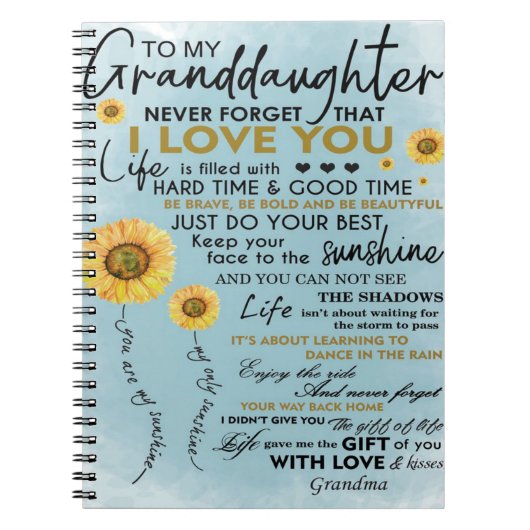 TO MY
Granddaughter
NEVER FORGET THAT
I LOVE YOU
Life is filled with
HARD TIME & GOOD TIME
BE BRAVE, BE BOLD AND BE BEAUTIFUL
JUST DO YOUR BEST
Keep your
face to the sunshine
AND YOU CAN NOT SEE
THE SHADOWS
Life isn't about waiting for
the storm to pass
IT'S ABOUT LEARNING TO
DANCE IN THE RAIN
Enjoy the ride
And never forget
YOUR WAY BACK HOME
I DIDN'T GIVE YOU The gift of life
Life gave me the GIFT of you
WITH LOVE & kisses
Grandma
you are my sunshine
my only sunshine